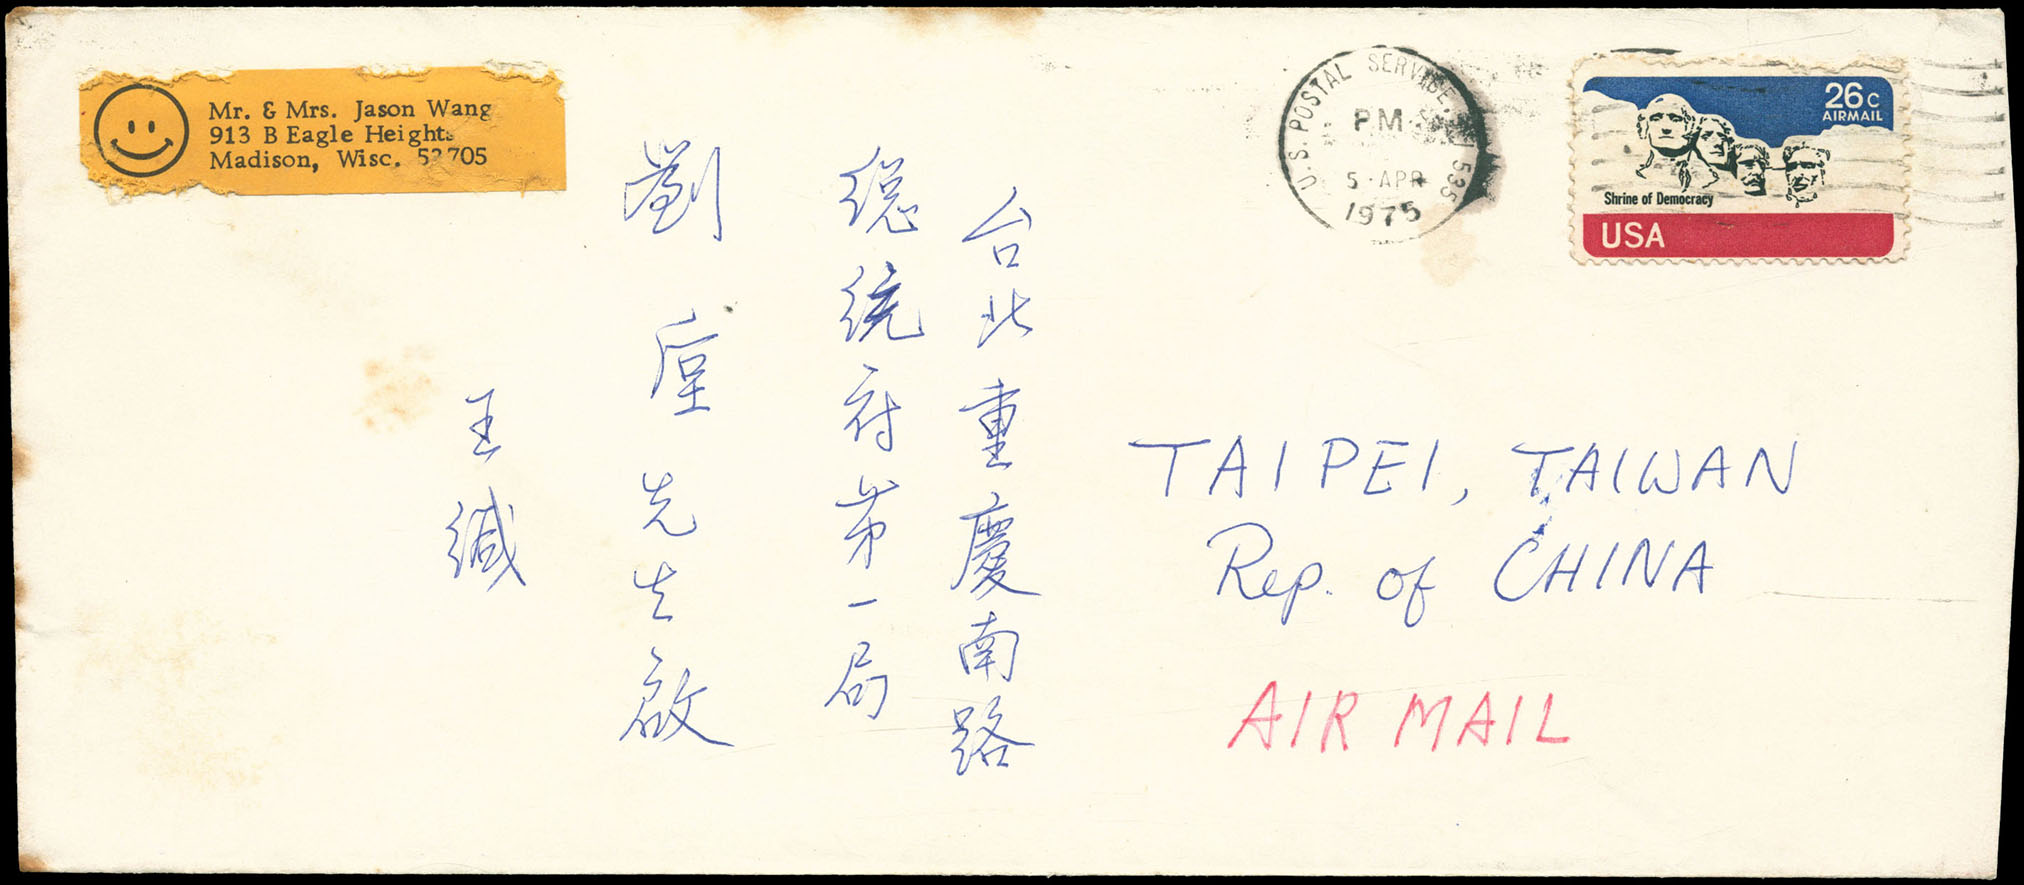 Mr. & Mrs. Jason Wang
913 B Eagle Heights
Madison, Wisc. 53705
U.S. POSTAL SERVICE 535
PM
5 APR
1975
26c
AIRMAIL
Shrine of Democracy
USA
台北重慶南路
總統府第一局
劉 先生啟
王緘
TAIPEI, TAIWAN
Rep. of CHINA
AIR MAIL